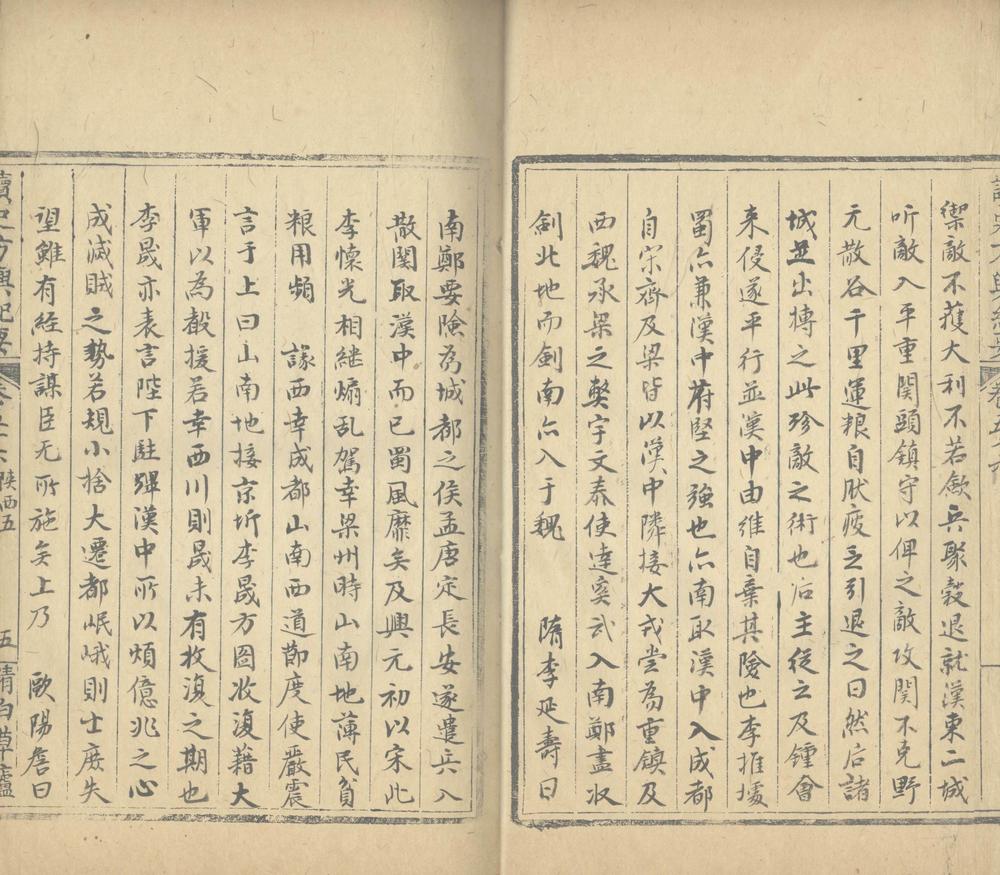 禦敵不獲大利不若歛兵聚穀退就漢東二城
听敵入平重関頭鎮守以俾之敵攻関不克野
元散谷千里運粮自肰疲乏引退之日然后諸
城並出搏之此殄敵之術也后主從之及鍾會
来侵遂平行並漢中由維自棄其險也李推據
蜀亦兼漢中苻堅之強也亦南取漢中入成都
自宋齊及梁皆以漢中隣接大戎尝為重鎮及
西魏承梁之獘宇文泰使達奚武入南鄭盡收
劍北地而劍南亦入于魏 隋李延壽曰
南鄭要險為城都之侯孟唐定長安遂遣兵入
散関取漢中而巳蜀風靡矣及興元初以宋泚
李懷光相継煽乱駕幸梁州時山南地薄民貧
粮用頻 議西幸成都山南西道節度使嚴震
言于上曰山南地接京圻李晟方圖收復藉大
軍以為聲援若幸西川則晟未有收復之期也
李晟亦表言陛下駐蹕漢中所以煩億兆之心
成滅賊之勢若規小捨大遷都岷峨則士庶失
望雖有経持謀臣无所施矣上乃 歐陽詹曰
讀史方輿紀要 卷五十六 陕西五 五 清白草廬